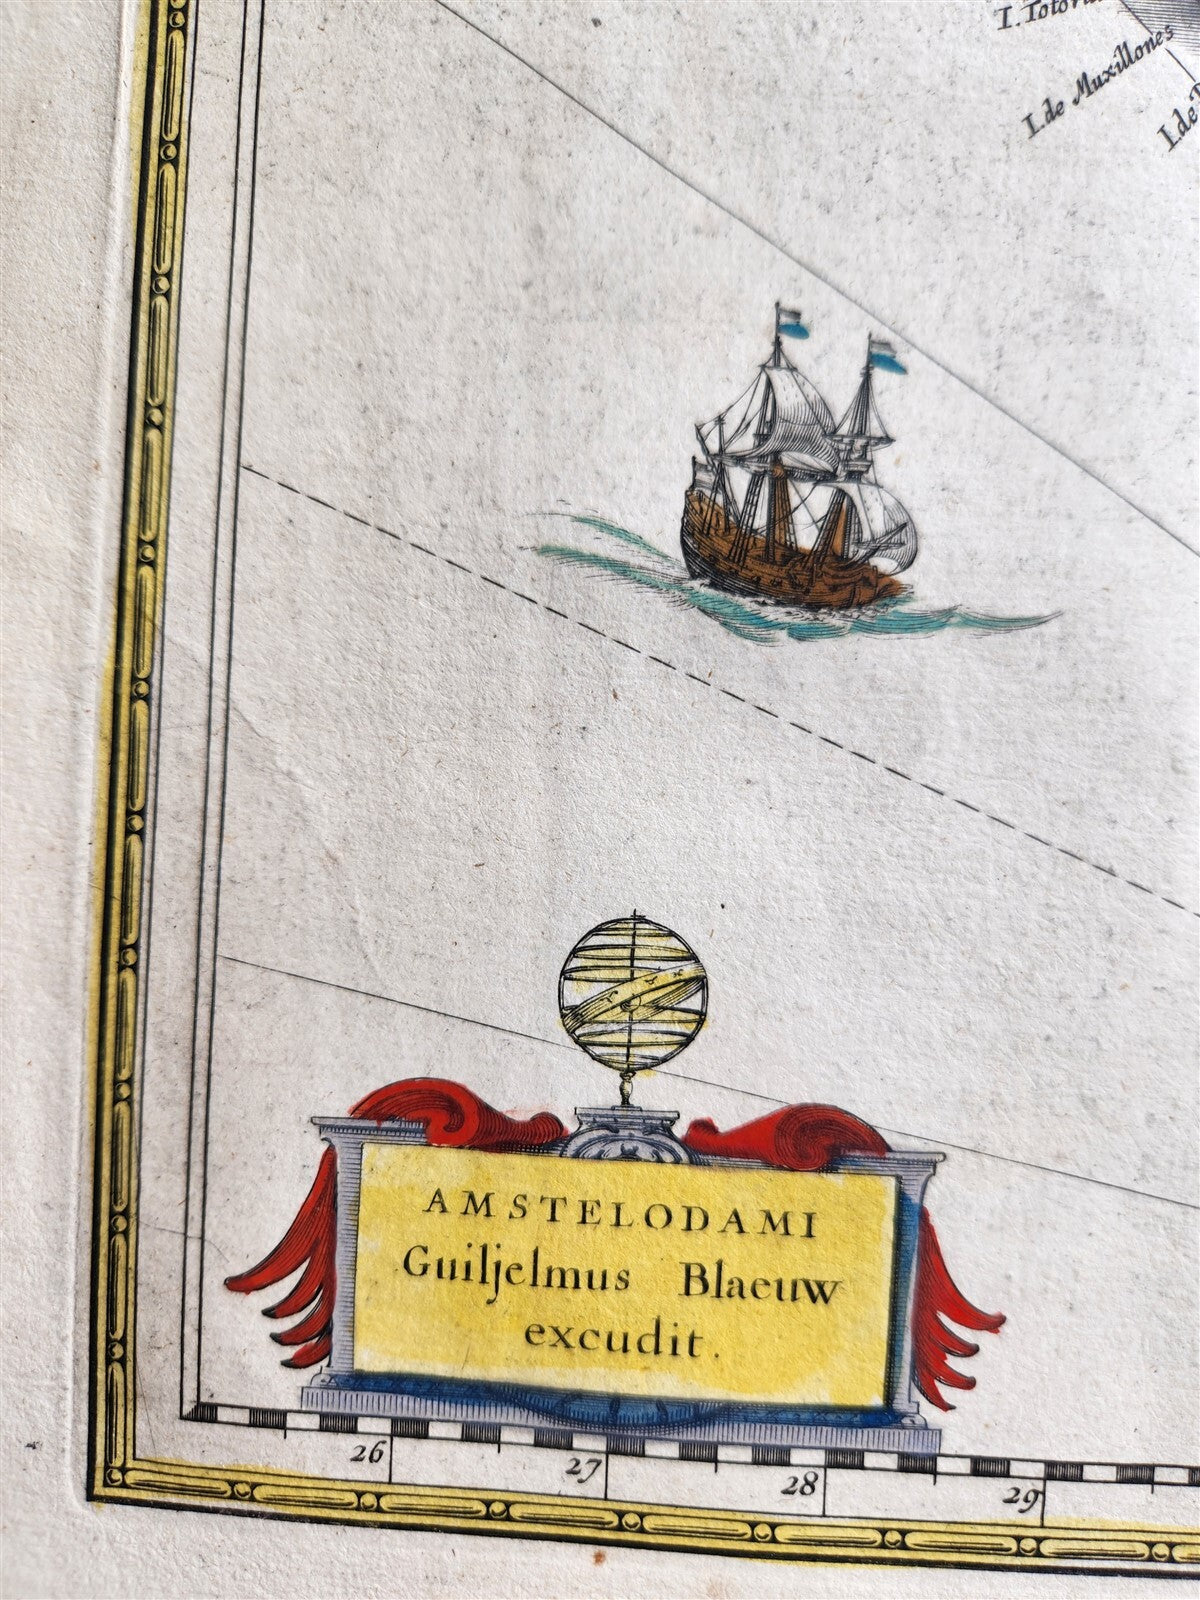 I. de Muxillones
I. de
AMSTELODAMI
Guiljelmus Blaeuw
excudit.
26 27 28 29